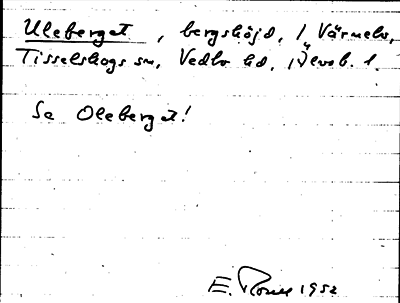 Uleberget, bergshöjd, / Värmeln,
Tisselskogs sn, Vedbo hd, Älvsb. l.
Se Oleberget!
E. 1952